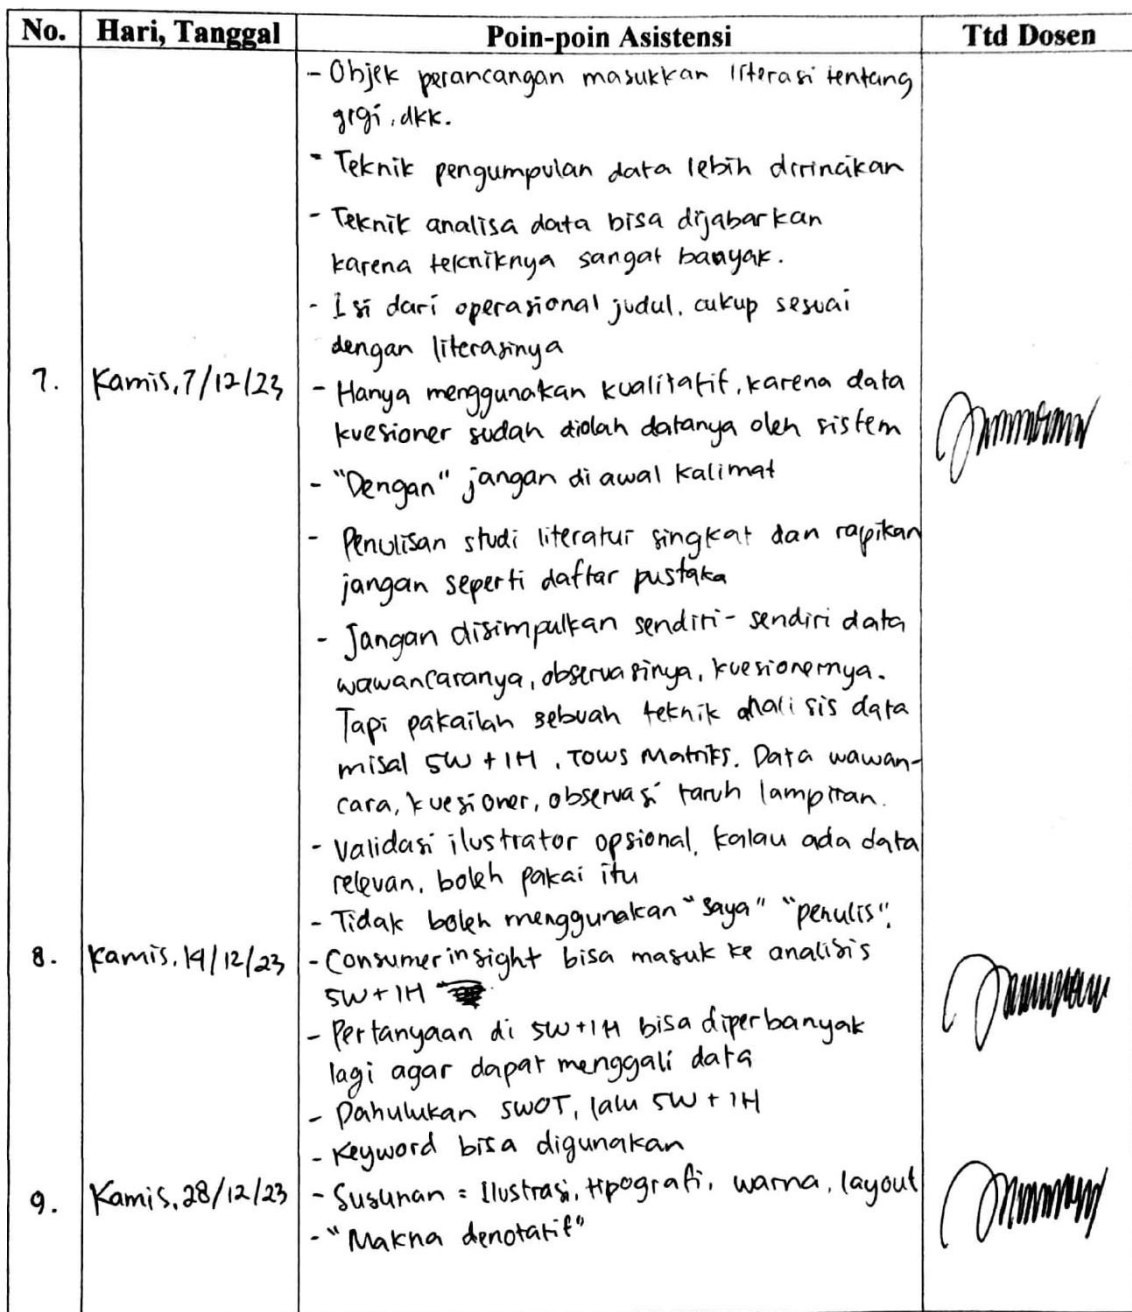 No. Hari, Tanggal Poin-poin Asistensi Ttd Dosen
- Objek perancangan masukkan literasi tentang
gigi, dkk.
- Teknik pengumpulan data lebih dirincikan
- Teknik analisa data bisa dijabarkan
karena tekniknya sangat banyak.
- Isi dari operasional judul, cukup sesuai
dengan literasinya
7. Kamis, 7/12/23 - Hanya menggunakan kualitatif, karena data
kuesioner sudah diolah datanya oleh sistem
- "Dengan" jangan di awal kalimat
- Penulisan studi literatur singkat dan rapikan
jangan seperti daftar pustaka
- Jangan disimpulkan sendiri-sendiri data
wawancaranya, observasinya, kuesionernya.
Tapi pakailah sebuah teknik analisis data
misal 5W + 1H, TOWS Matriks. Data wawan-
cara, kuesioner, observasi taruh lampiran.
- Validasi ilustrator opsional, kalau ada data
relevan, boleh pakai itu
- Tidak boleh menggunakan "saya" "penulis".
8. Kamis, 14/12/23 - Consumer insight bisa masuk ke analisis
5W + 1H
- Pertanyaan di 5W+1H bisa diperbanyak
lagi agar dapat menggali data
- Dahulukan SWOT, lalu 5W + 1H
- Keyword bisa digunakan
9. Kamis, 28/12/23 - Susunan = Ilustrasi, tipografi, warna, layout
- "Makna denotatif"